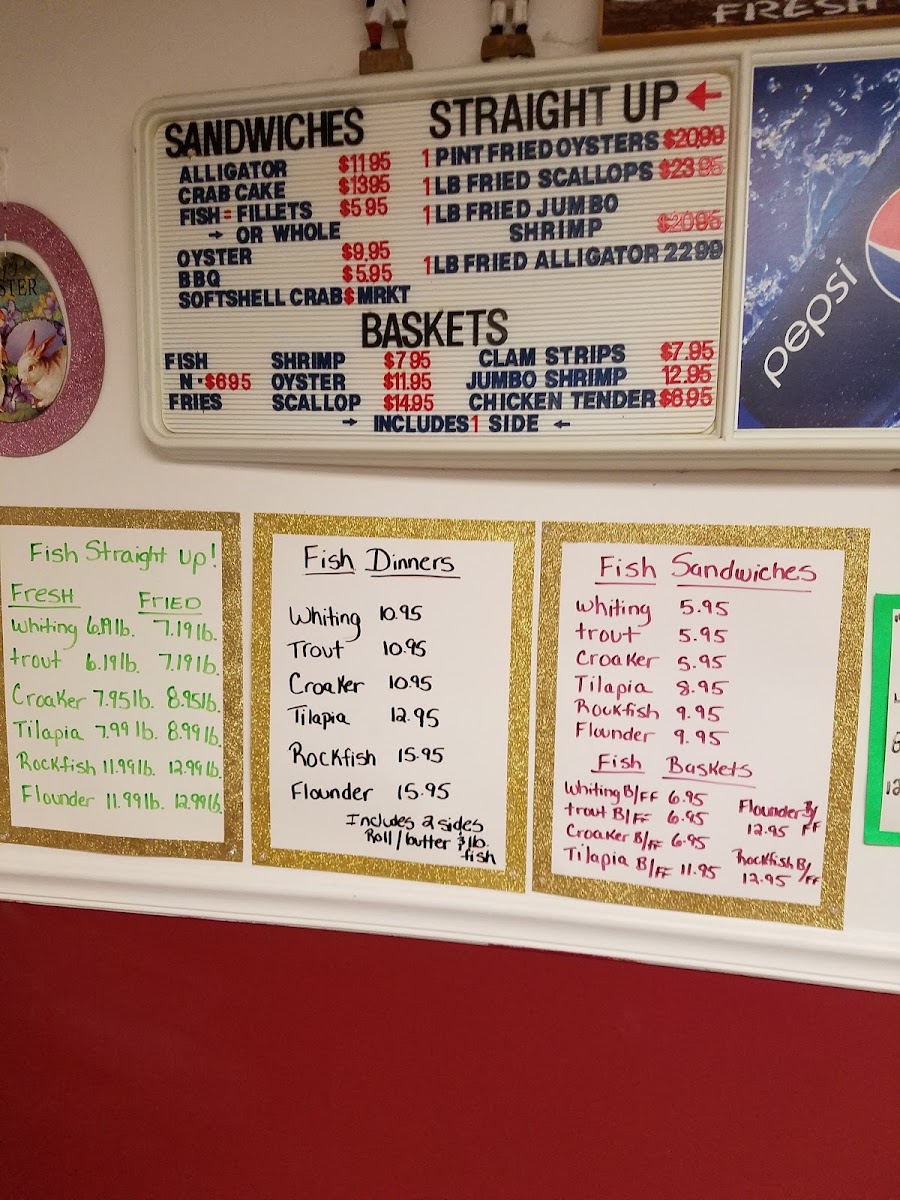 FRESH
STER
SANDWICHES
ALLIGATOR $11.95
CRAB CAKE $13.95
FISH = FILLETS $5.95
→ OR WHOLE
OYSTER $9.95
BBQ $5.95
SOFTSHELL CRAB $ MRKT
STRAIGHT UP ←
1 PINT FRIED OYSTERS $20.99
1 LB FRIED SCALLOPS $23.95
1 LB FRIED JUMBO
SHRIMP $20.95
1 LB FRIED ALLIGATOR 22 99
BASKETS
FISH
N - $6 95
FRIES
SHRIMP $7 95
OYSTER $11.95
SCALLOP $14.95
CLAM STRIPS $7.95
JUMBO SHRIMP 12.95
CHICKEN TENDER $6.95
→ INCLUDES 1 SIDE ←
pepsi
Fish Straight up!
FRESH FRIED
Whiting 6.19 lb. 7.19 lb.
trout 6.19 lb. 7.19 lb.
Croaker 7.95 lb. 8.95 lb.
Tilapia 7.99 lb. 8.99 lb.
Rockfish 11.99 lb. 12.99 lb.
Flounder 11.99 lb. 12.99 lb.
Fish Dinners
Whiting 10.95
Trout 10.95
Croaker 10.95
Tilapia 12.95
Rockfish 15.95
Flounder 15.95
Includes 2 sides
Roll/butter
fish
Fish Sandwiches
whiting 5.95
trout 5.95
Croaker 5.95
Tilapia 8.95
Rockfish 9.95
Flounder 9.95
Fish Baskets
Whiting B/FF 6.95
trout B/FF 6.95
Croaker B/FF 6.95
Tilapia B/FF 11.95
Flounder B/
12.95 FF
Rockfish B/
12.95 FF